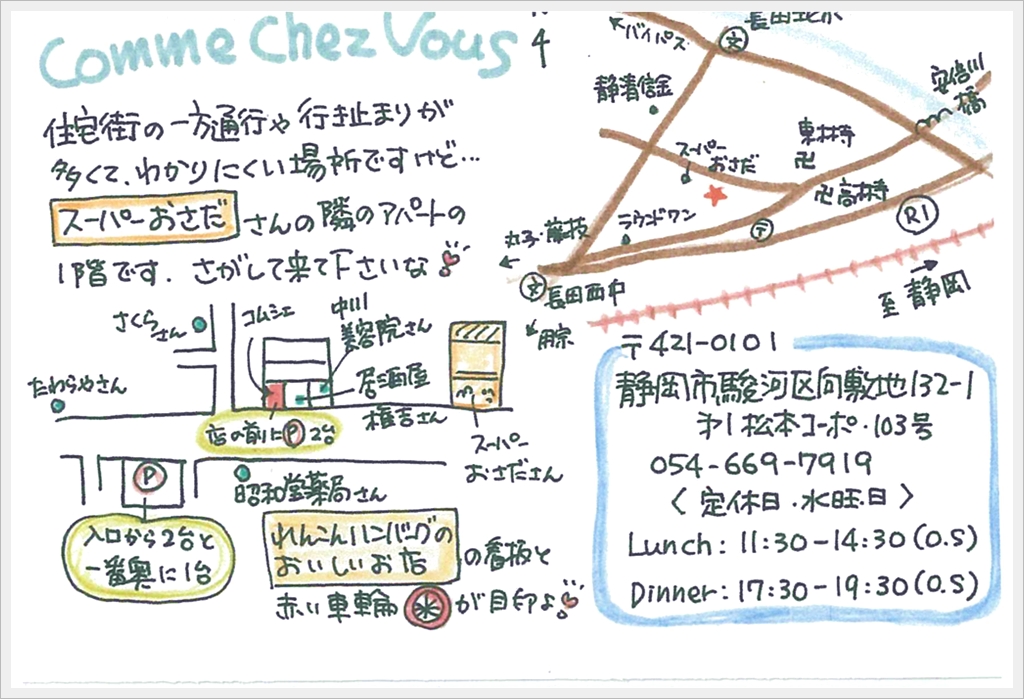 Comme Chez Vous
住宅街の一方通行や行き止まりが
多くて、わかりにくい場所ですけど…
スーパーおさだ さんの隣のアパートの
1階です。さがして来て下さいな
バイパス
文
静清信金
安倍川
橋
東林寺
卍
スーパー
おさだ
卍高林寺
ラウンドワン
〒
R1
丸子・藤枝
文
長田西中
用宗
至静岡
さくら
さん
コムシェ
中川
美容院さん
居酒屋
権吉さん
たわらやさん
店の前にP2台
スーパー
おさださん
P
昭和堂薬局さん
入口から2台と
一番奥に1台
れんこんハンバーグの
おいしいお店
の看板と
赤い車輪 が目印よ
〒421-0101
静岡市駿河区向敷地132-1
第1松本コーポ・103号
054-669-7919
〈定休日・水曜日〉
Lunch: 11:30-14:30(O.S)
Dinner: 17:30-19:30(O.S)